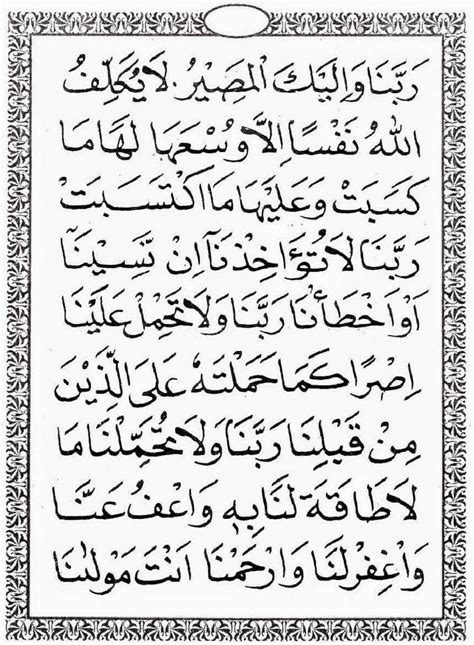 رَبَّنَا وَاِلَيْكَ الْمَصِيْرُ. لَا يُكَلِّفُ
اللّٰهُ نَفْسًا اِلَّا وُسْعَهَا لَهَا مَا
كَسَبَتْ وَعَلَيْهَا مَا اكْتَسَبَتْ
رَبَّنَا لَا تُؤَاخِذْنَآ اِنْ نَّسِيْنَآ
اَوْ اَخْطَأْنَا رَبَّنَا وَلَا تَحْمِلْ عَلَيْنَا
اِصْرًا كَمَا حَمَلْتَهٗ عَلَى الَّذِيْنَ
مِنْ قَبْلِنَا رَبَّنَا وَلَا تُحَمِّلْنَا مَا
لَا طَاقَةَ لَنَا بِهٖ وَاعْفُ عَنَّا
وَاغْفِرْلَنَا وَارْحَمْنَا اَنْتَ مَوْلٰىنَا